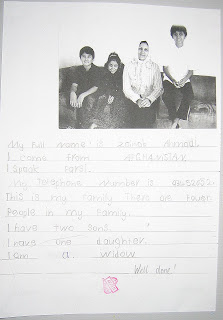 My Full name is zainab Ahmadi
I come from AFGHANISTAN
I speak Farsi.
My Telephone number is
This is my family There are fower
People in my Family.
I have two Sons
I have one daughter
I am a widow
Well done!